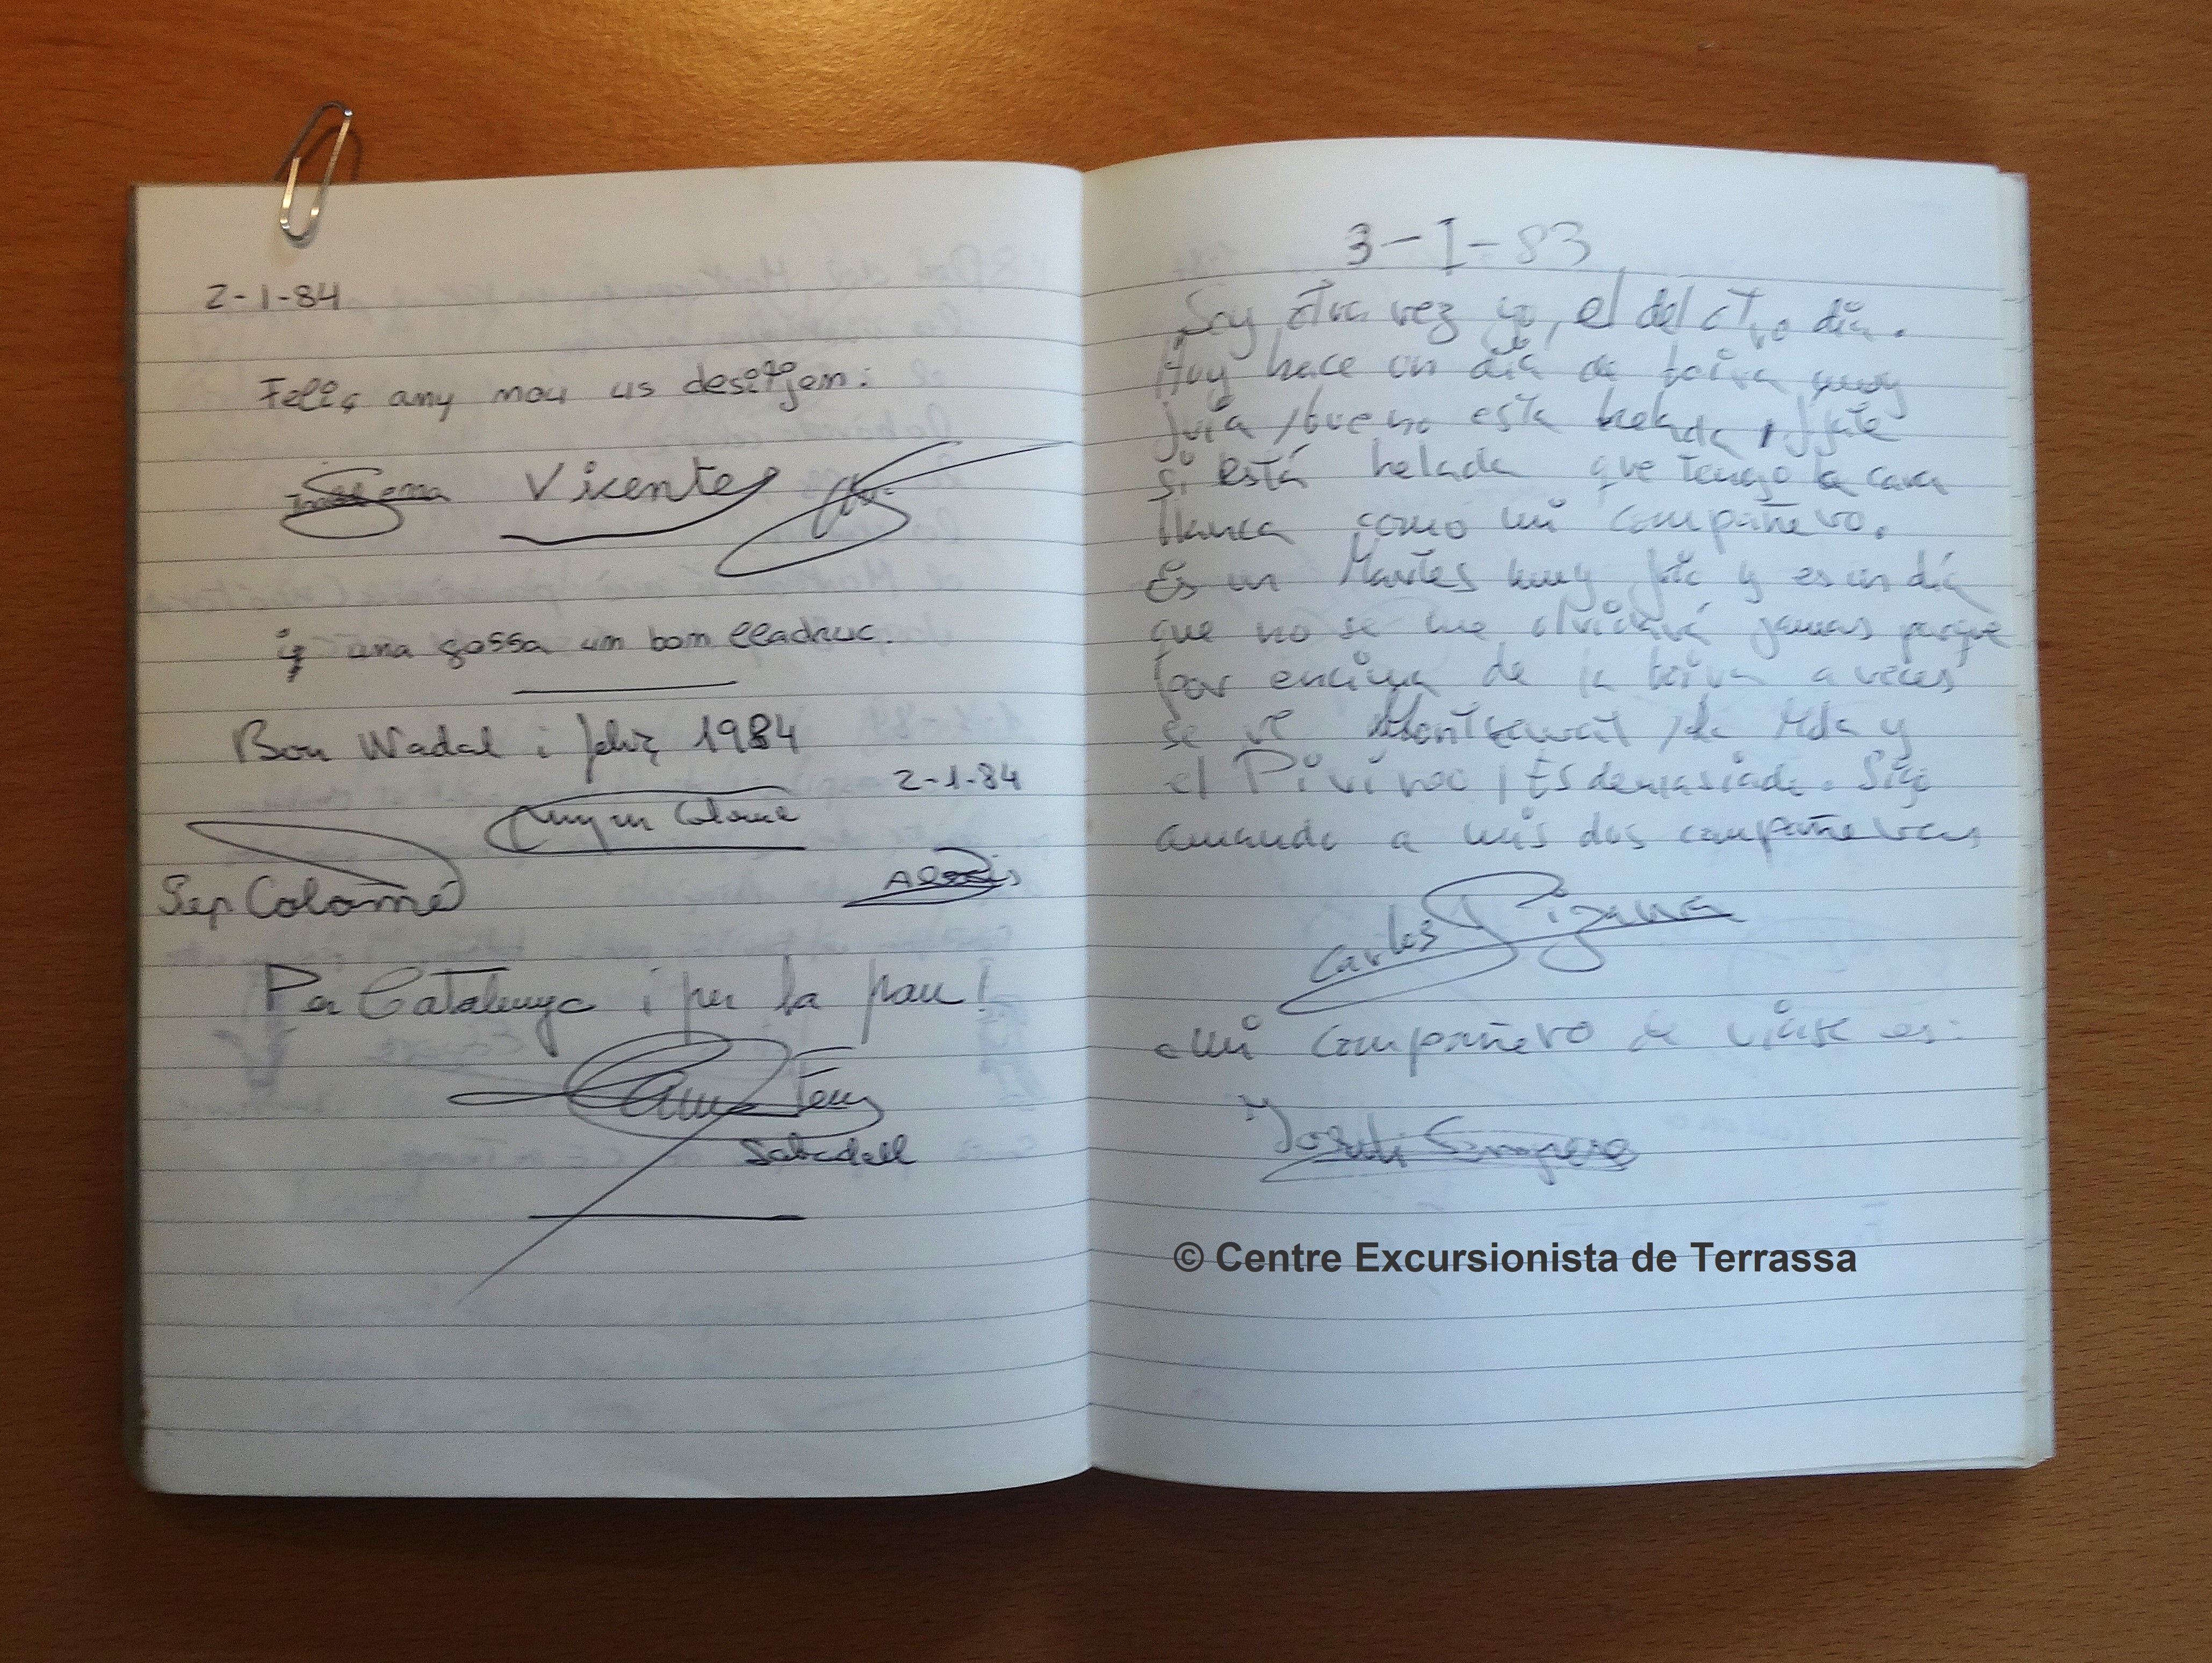 2-1-84
Feliç any nou us desitjem:
Gemma Vicente
i una gossa un bon lladruc.
Bon Nadal i feliç 1984
2-1-84
Colomé
Pep Colomé
Alexis
Per Catalunya i per la pau!
Sabadell
3-I-83
Soy otra vez yo, el del otro día.
Hoy hace un día de boira muy
fría, bueno esta helada, fíjate
si está helada que tengo la cara
blanca como mi compañero.
Es un Martes muy frío y es un día
que no se me olvidará jamas porque
por encima de la boira a veces
se ve Montserrat, la Mola y
el Pirineo, Es demasiado. Sigo
amando a mis dos compañeras
Carles
mi compañero de viaje es:
Sempere
© Centre Excursionista de Terrassa